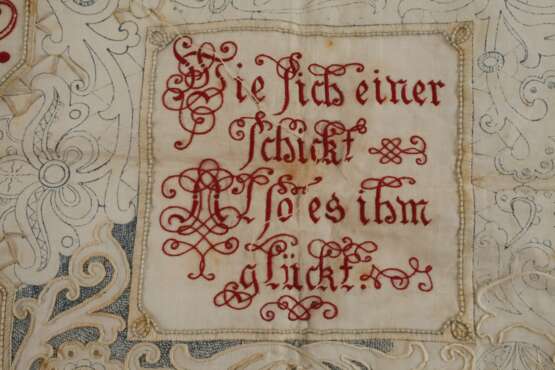 Wie sich einer
schickt
Also es ihm
glückt.